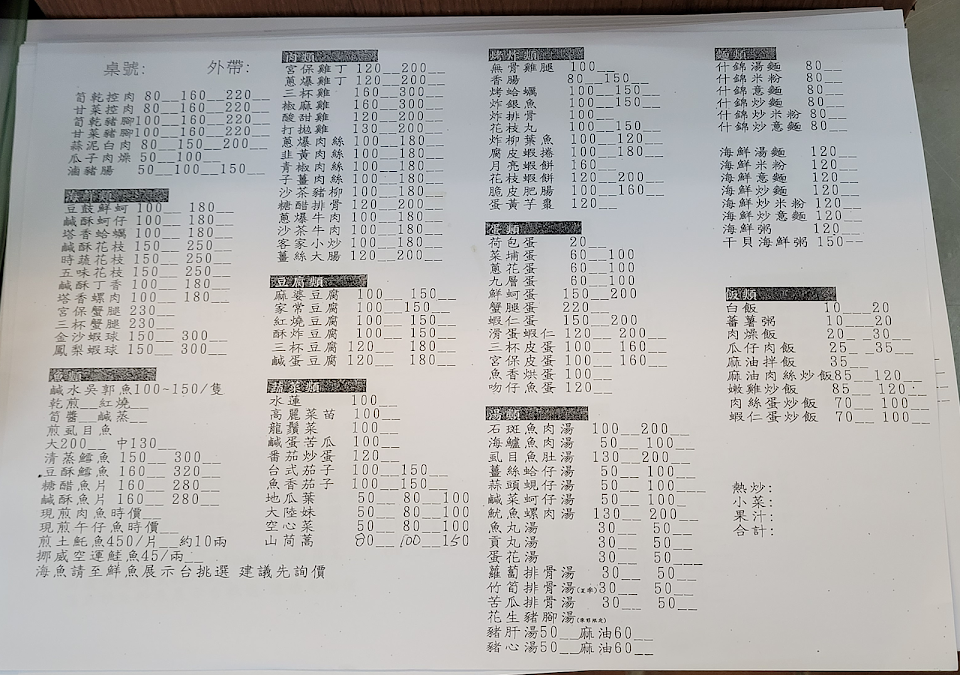 桌號:　外帶:
筍乾控肉 80__160__220__
甘菜控肉 80__160__220__
筍乾豬腳100__160__220__
甘菜豬腳100__160__220__
蒜泥白肉 80__150__200__
瓜子肉燥 50__100__
滷豬腸 50__100__150__
海鮮類
豆鼓鮮蚵 100__ 180__
鹹酥蚵仔 100__ 180__
塔香蛤蠣 100__ 180__
鹹酥花枝 150__ 250__
時蔬花枝 150__ 250__
五味花枝 150__ 250__
鹹酥丁香 100__ 180__
塔香螺肉 100__ 180__
宮保蟹腿 230__
三杯蟹腿 230__
金沙蝦球 150__ 300__
鳳梨蝦球 150__ 300__
魚類
鹹水吳郭魚100~150/隻
乾煎__紅燒__
筍醬__鹹蒸__
煎虱目魚
大200__ 中130__
清蒸鱈魚 150__ 300__
豆酥鱈魚 160__ 320__
糖醋魚片 160__ 280__
鹹酥魚片 160__ 280__
現煎肉魚時價__
現煎午仔魚時價__
煎土魠魚450/片__約10兩
挪威空運鮭魚45/兩__
海魚請至鮮魚展示台挑選 建議先詢價
肉類
宮保雞丁 120__200__
蔥爆雞丁 120__200__
三杯雞 160__300__
椒麻雞 160__300__
酸甜雞 120__200__
打拋雞 130__200__
蔥爆肉絲 100__180__
韭黃肉絲 100__180__
青椒肉絲 100__180__
子薑肉絲 100__180__
沙茶豬柳 100__180__
糖醋排骨 120__200__
蔥爆牛肉 100__180__
沙茶牛肉 100__180__
客家小炒 100__180__
薑絲大腸 120__200__
豆腐類
麻婆豆腐 100__ 150__
家常豆腐 100__150__
紅燒豆腐 100__150__
酥炸豆腐 100__150__
三杯豆腐 120__ 180__
鹹蛋豆腐 120__ 180__
蔬菜類
水蓮 100__
高麗菜苗 100__
龍鬚菜 100__
鹹蛋苦瓜 100__
番茄炒蛋 120__
台式茄子 100__150__
魚香茄子 100__150__
地瓜葉 50__ 80__100
大陸妹 50__ 80__100
空心菜 50__ 80__100
山茼蒿 80__100__150
烤炸類
無骨雞腿 100__
香腸 80__150__
烤蛤蠣 100__150__
炸銀魚 100__150__
炸排骨 100__
花枝丸 100__150__
炸柳葉魚 100__120__
腐皮蝦捲 100__180__
月亮蝦餅 160__
花枝蝦餅 120__200__
脆皮肥腸 100__160__
蛋黃芋棗 120__
蛋類
荷包蛋 20__
菜埔蛋 60__100
蔥花蛋 60__100
九層蛋 60__100
鮮蚵蛋 150__200
蟹腿蛋 220__
蝦仁蛋 150__200
滑蛋蝦仁 120__200__
三杯皮蛋 100__160__
宮保皮蛋 100__160__
魚香烘蛋 100__
吻仔魚蛋 120__
湯類
石斑魚肉湯 100__200__
海鱸魚肉湯 50__100__
虱目魚肚湯 130__200__
薑絲蛤仔湯 50__100__
蒜頭蜆仔湯 50__100__
鹹菜蚵仔湯 50__100__
魷魚螺肉湯 130__200__
魚丸湯 30__ 50__
貢丸湯 30__ 50__
蛋花湯 30__ 50__
蘿蔔排骨湯 30__ 50__
竹筍排骨湯(夏季)30__ 50__
苦瓜排骨湯 30__ 50__
花生豬腳湯
豬肝湯50__麻油60__
豬心湯50__麻油60__
麵類
什錦湯麵 80__
什錦米粉 80__
什錦意麵 80__
什錦炒麵 80__
什錦炒米粉 80__
什錦炒意麵 80__
海鮮湯麵 120__
海鮮米粉 120__
海鮮意麵 120__
海鮮炒麵 120__
海鮮炒米粉 120__
海鮮炒意麵 120__
海鮮粥 120__
干貝海鮮粥 150--
飯類
白飯 10__20
蕃薯粥 10__20
肉燥飯 20__30__
瓜仔肉飯 25__35__
麻油拌飯 35__
麻油肉絲炒飯85__120__
嫩雞炒飯 85__120__
肉絲蛋炒飯 70__100__
蝦仁蛋炒飯 70__100__
熱炒:
小菜:
果汁:
合計: